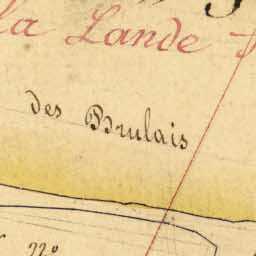 la Lande
des Brulais
22°